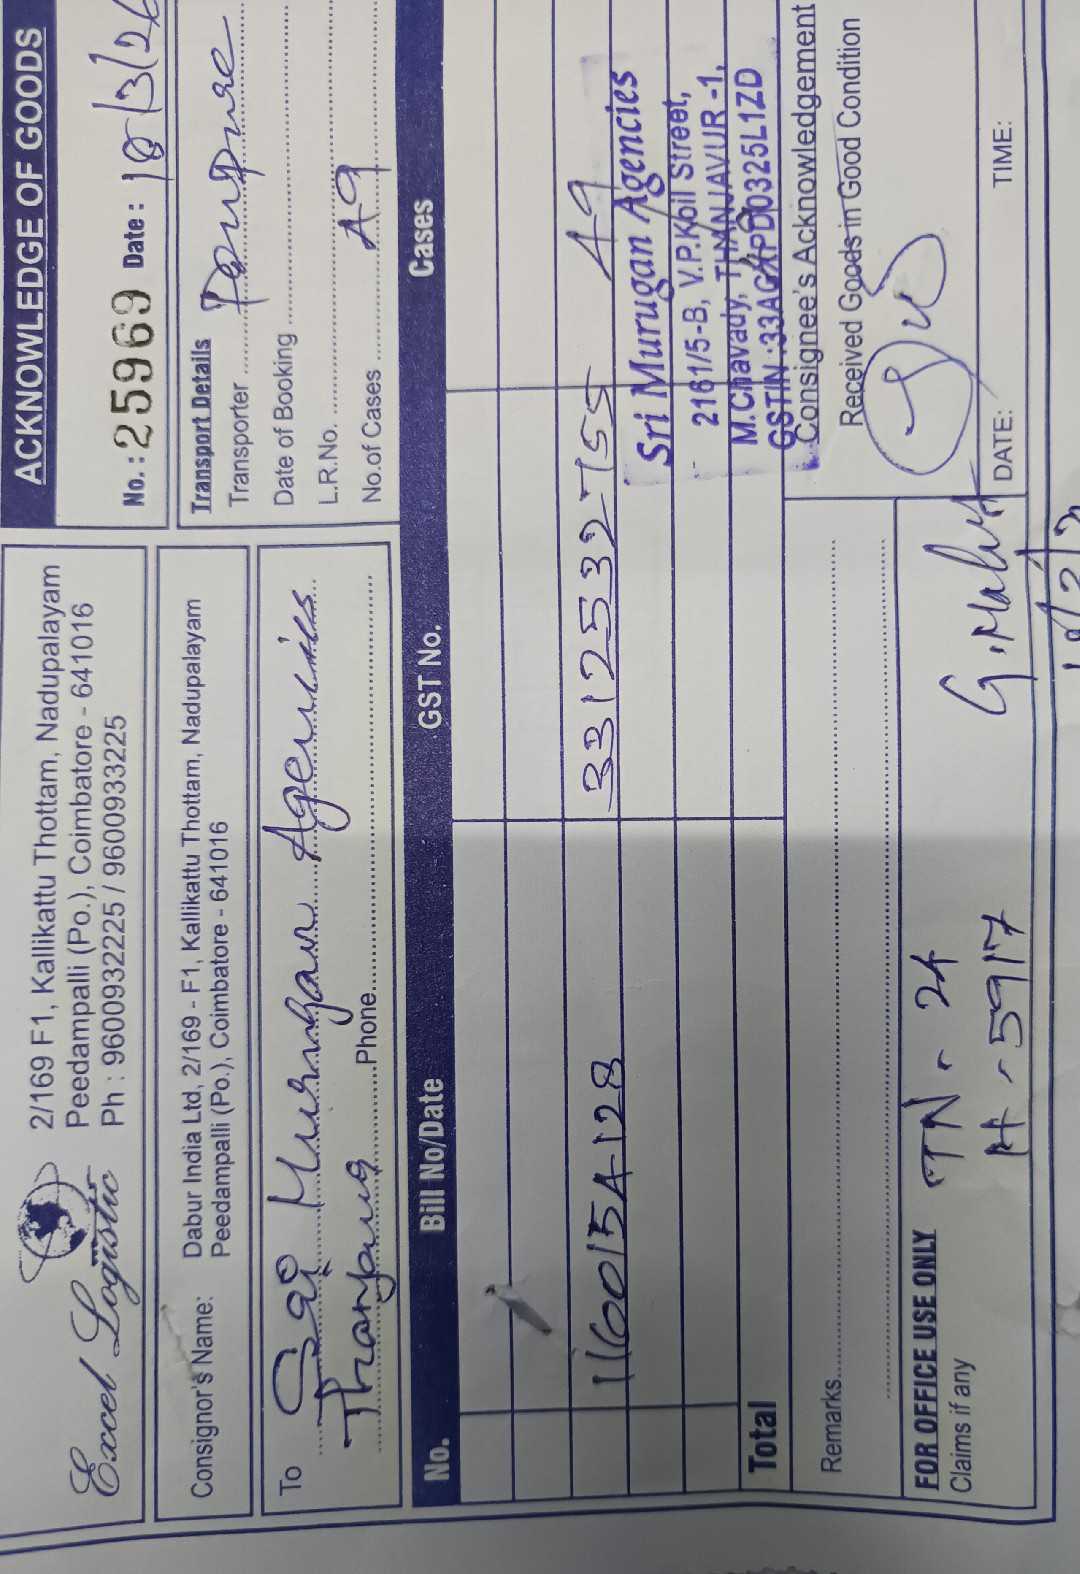 Excel Logistic
2/169 F1, Kallikattu Thottam, Nadupalayam
Peedampalli (Po.), Coimbatore - 641016
Ph : 9600932225 / 9600933225
ACKNOWLEDGE OF GOODS
No.: 25969 Date : 18/3/26
Consignor's Name: Dabur India Ltd, 2/169 - F1, Kallikattu Thottam, Nadupalayam
Peedampalli (Po.), Coimbatore - 641016
To Sri Murugan Agencies
Phone
Transport Details
Transporter
Date of Booking
L.R.No.
No.of Cases 49
No. Bill No/Date GST No. Cases
1160154128 3312532755 49
Total
Sri Murugan Agencies
2161/5-B, V.P.Koil Street,
M.Chavady, THANJAVUR -1,
GSTIN :33AGXPD0325L1ZD
Remarks
Consignee's Acknowledgement
Received Goods in Good Condition
FOR OFFICE USE ONLY
Claims if any
TN - 24
5917
DATE: TIME: